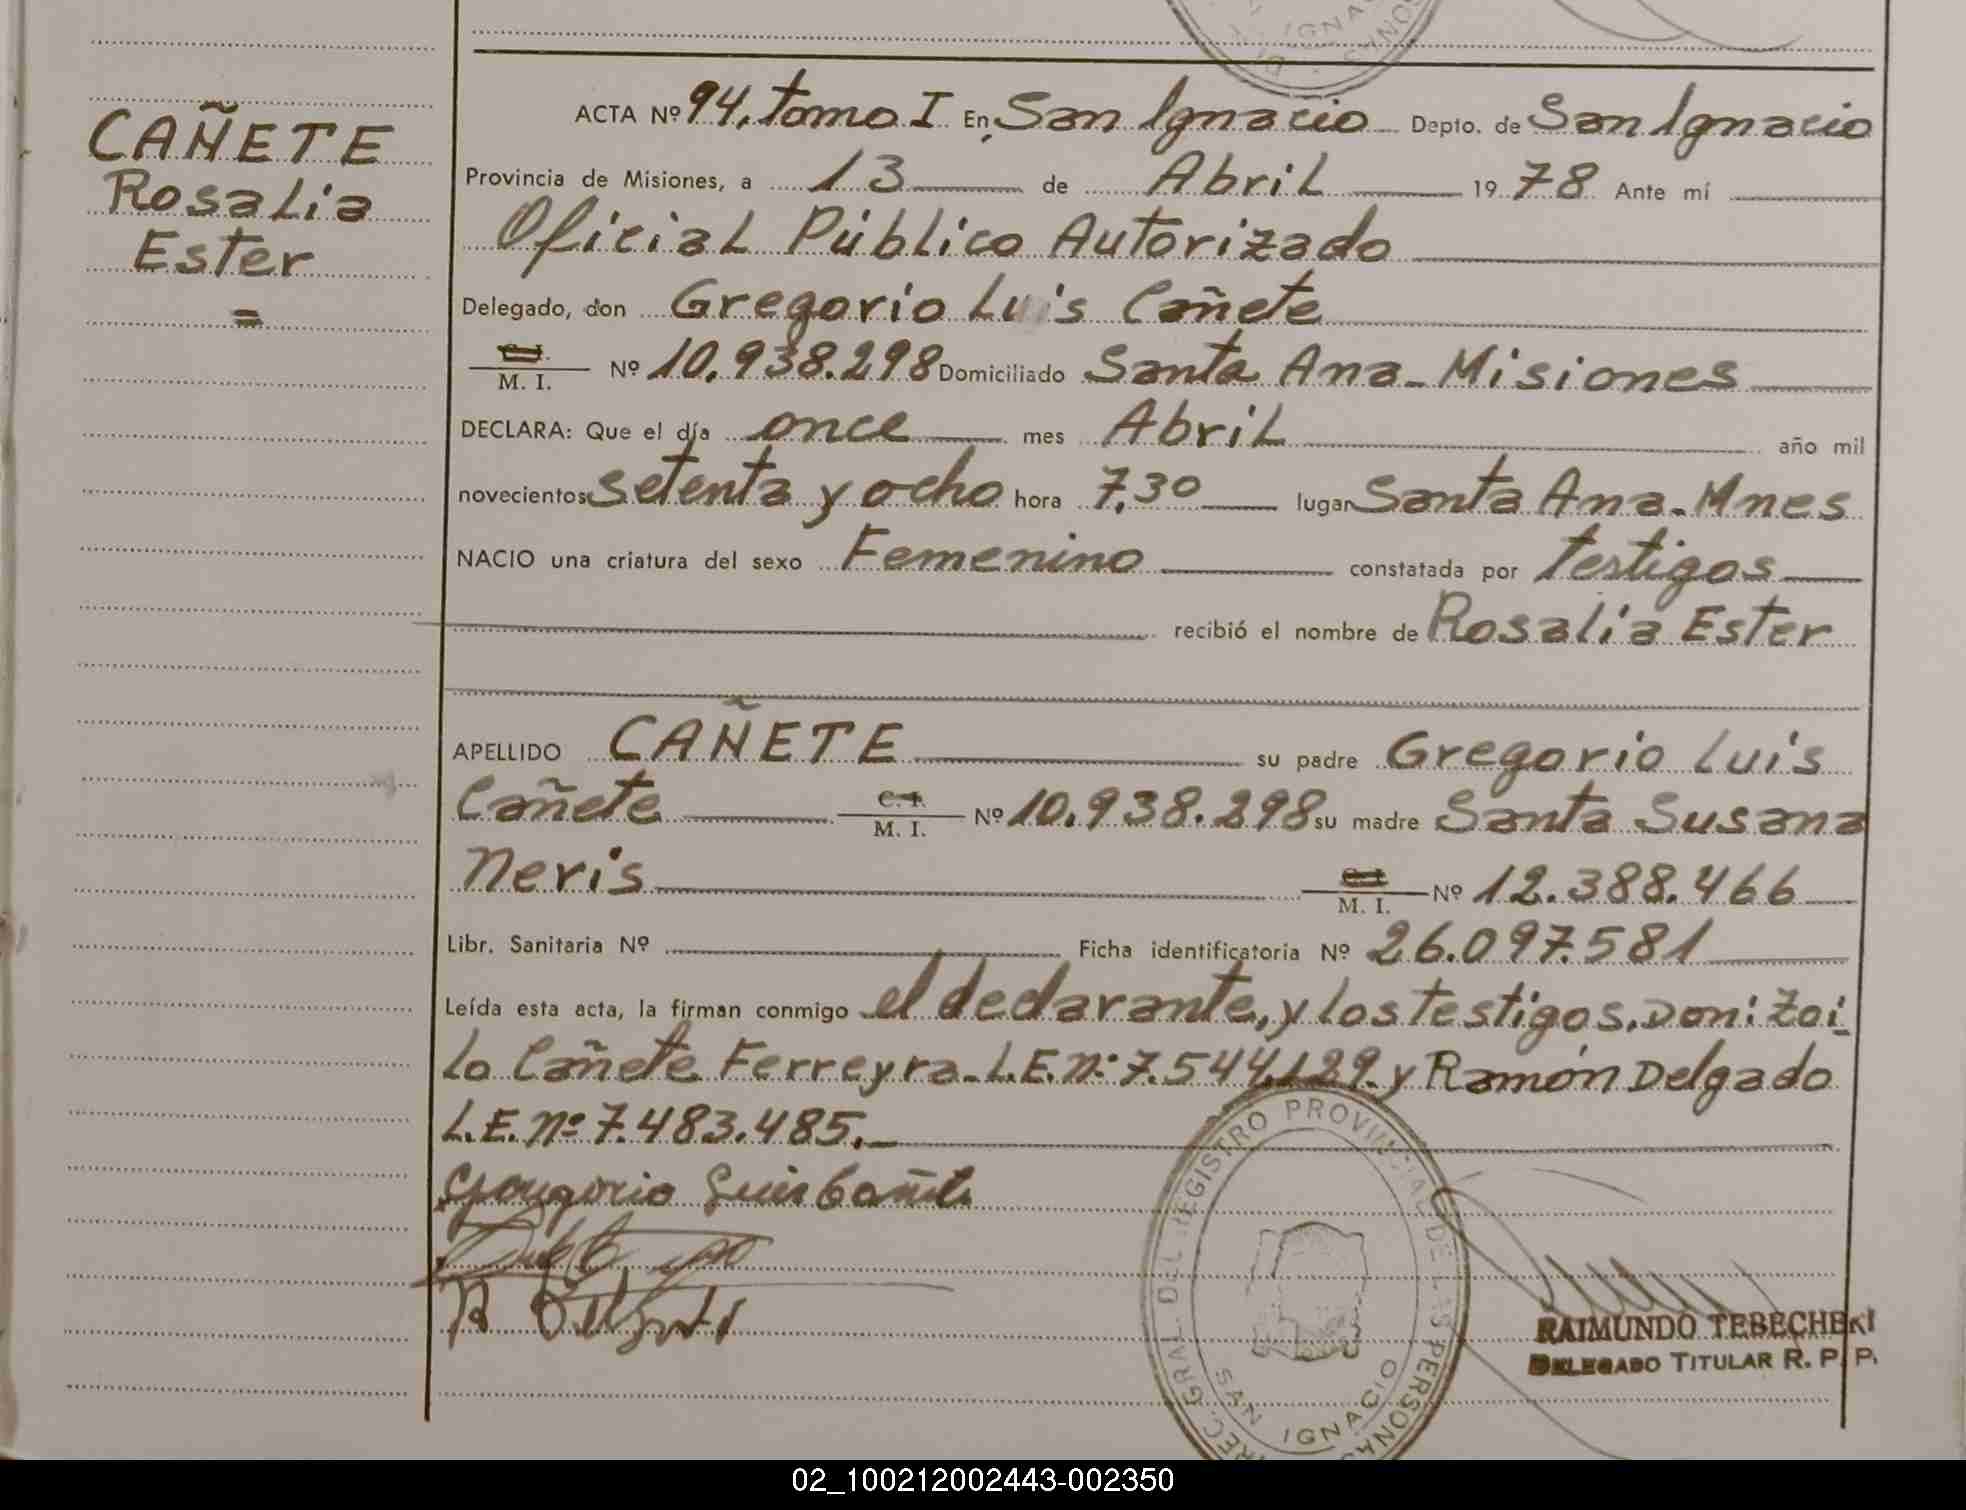 CAÑETE
Rosalia
Ester
=
ACTA Nº 94, tomo I En San Ignacio Depto. de San Ignacio
Provincia de Misiones, a 13 de Abril 1978 Ante mí
Oficial Público Autorizado
Delegado, don Gregorio Luis Cañete
C. I.
M. I. Nº 10.938.298 Domiciliado Santa Ana - Misiones
DECLARA: Que el día once mes Abril año mil
novecientos setenta y ocho hora 7,30 lugar Santa Ana - Mnes
NACIO una criatura del sexo Femenino constatada por testigos
recibió el nombre de Rosalia Ester
APELLIDO CAÑETE su padre Gregorio Luis
Cañete C. I. M. I. Nº 10.938.298 su madre Santa Susana
Neris C. I. M. I. Nº 12.388.466
Libr. Sanitaria Nº Ficha identificatoria Nº 26.097.581
Leída esta acta, la firman conmigo el declarante, y los testigos, Don: Zoi-
lo Cañete Ferreyra - L.E. nº: 7.544.129 - y Ramón Delgado
L.E. nº 7.483.485. -
Gregorio Luis Cañete
DIREC. GRAL. DEL REGISTRO PROVINCIAL DE LAS PERSONAS
SAN IGNACIO
RAIMUNDO TEBECHERI
DELEGADO TITULAR R. P. P.
02_100212002443-002350